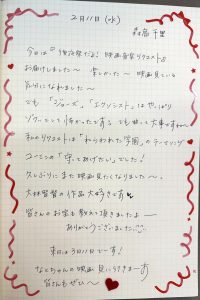 2月11日(水)
森高千里
今日は「1号放送だよ! 映画音楽リクエスト」を
お届けしました〜 楽しかった〜 映画見ている
気分になれました〜
でも「ジョーズ」、「エクソシスト」はやっぱり
ゾクッとして怖かったですね でも曲って大事ですね〜
私のリクエストは「ねらわれた学園」のテーマソング
ユーミンの「守ってあげたい」でした!
久しぶりにまた映画見たくなりました〜。
大林監督の作品大好きです
皆さんのお家も教えて頂きましたよ〜
ありがとうございました
来日は3月11日で〜す!
なとちゃんの映画 見に行きま〜す
皆さんもぜひ〜